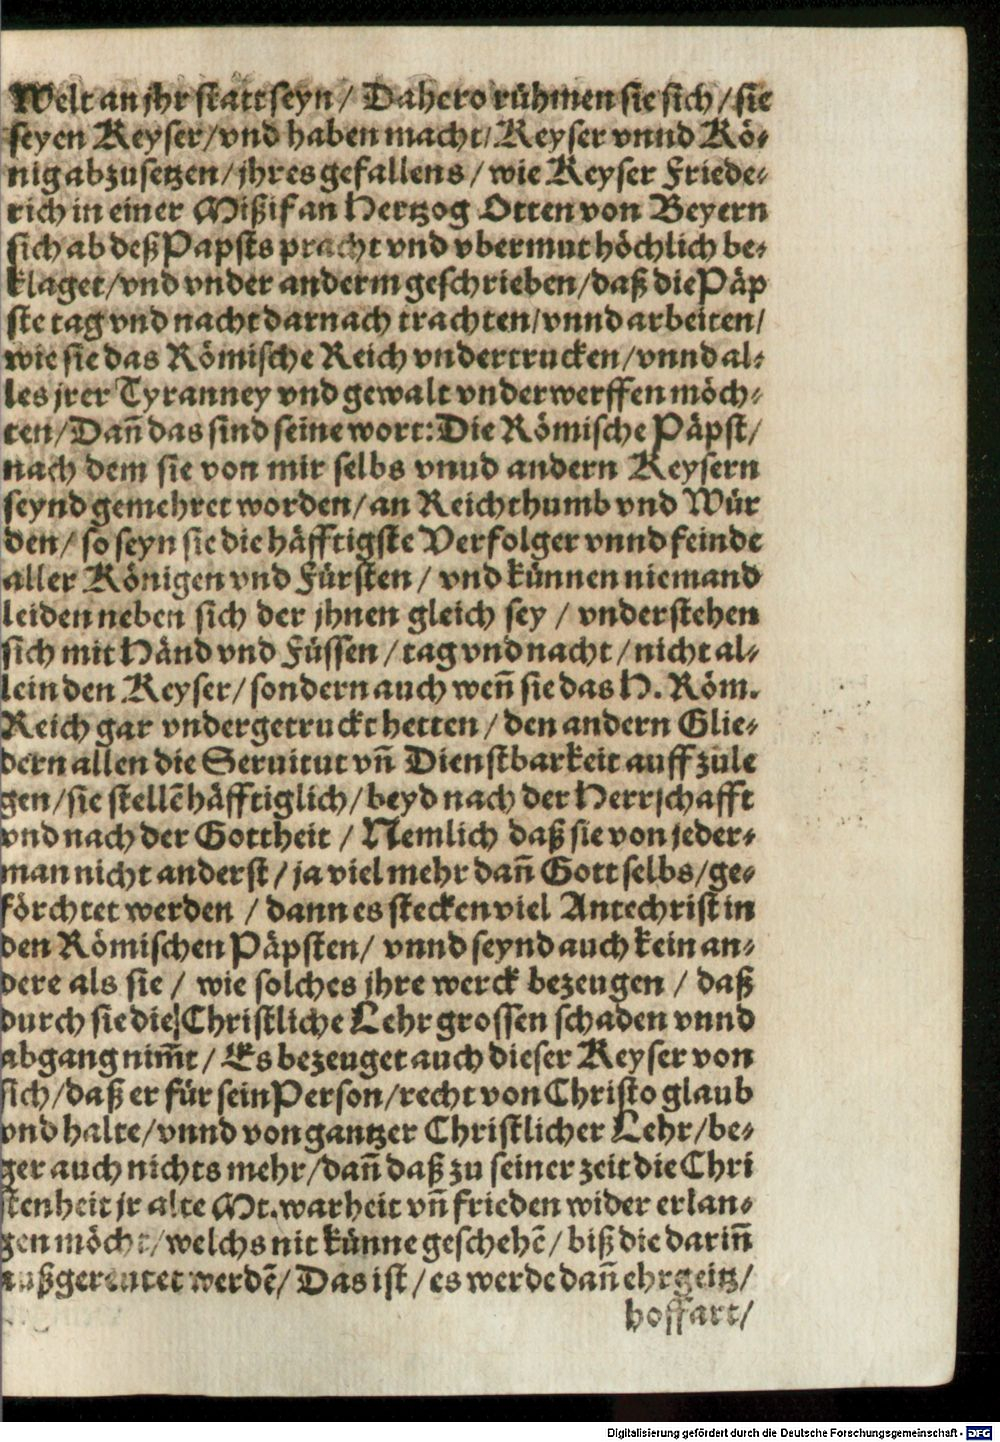 Welt an jhr statt seyn / Dahero rühmen sie sich / sie
seyen Keyser / vnd haben macht / Keyser vnnd Kö⸗
nig abzusetzen / jhres gefallens / wie Keyser Friede⸗
rich in einer Mißif an Hertzog Otten von Beyern
sich ab deß Papsts pracht vnd vbermut höchlich be⸗
klaget / vnd vnder anderm geschrieben / daß die Päp
ste tag vnd nacht darnach trachten / vnnd arbeiten /
wie sie das Römische Reich vndertrucken / vnnd al⸗
les jrer Tyranney vnd gewalt vnderwerffen möch⸗
ten / Dañ das sind seine wort: Die Römische Päpst /
nach dem sie von mir selbs vnud andern Keysern
seynd gemehret worden / an Reichthumb vnd Wür
den / so seyn sie die häfftigste Verfolger vnnd feinde
aller Königen vnd Fürsten / vnd künnen niemand
leiden neben sich der jhnen gleich sey / vnderstehen
sich mit Händ vnd Füssen / tag vnd nacht / nicht al⸗
lein den Keyser / sondern auch weñ sie das H. Röm.
Reich gar vndergetruckt hetten / den andern Glie⸗
dern allen die Seruitut vñ Dienstbarkeit auff zule
gen / sie stellē häfftiglich / beyd nach der Herrschafft
vnd nach der Gottheit / Nemlich daß sie von jeder⸗
man nicht anderst / ja viel mehr dañ Gott selbs / ge⸗
förchtet werden / dann es stecken viel Antechrist in
den Römischen Päpsten / vnnd seynd auch kein an⸗
dere als sie / wie solches jhre werck bezeugen / daß
durch sie die Christliche Lehr grossen schaden vnnd
abgang nim̄t / Es bezeuget auch dieser Keyser von
sich / daß er für sein Person / recht von Christo glaub
vnd halte / vnnd von gantzer Christlicher Lehr / be⸗
ger auch nichts mehr / dañ daß zu seiner zeit die Chri
stenheit jr alte Mt. warheit vñ frieden wider erlan⸗
gen möcht / welchs nit künne geschehē / biß die dariñ
außgereutet werdē / Das ist / es werde dañ ehrgeitz /
hoffart /
Digitalisierung gefördert durch die Deutsche Forschungsgemeinschaft - DFG